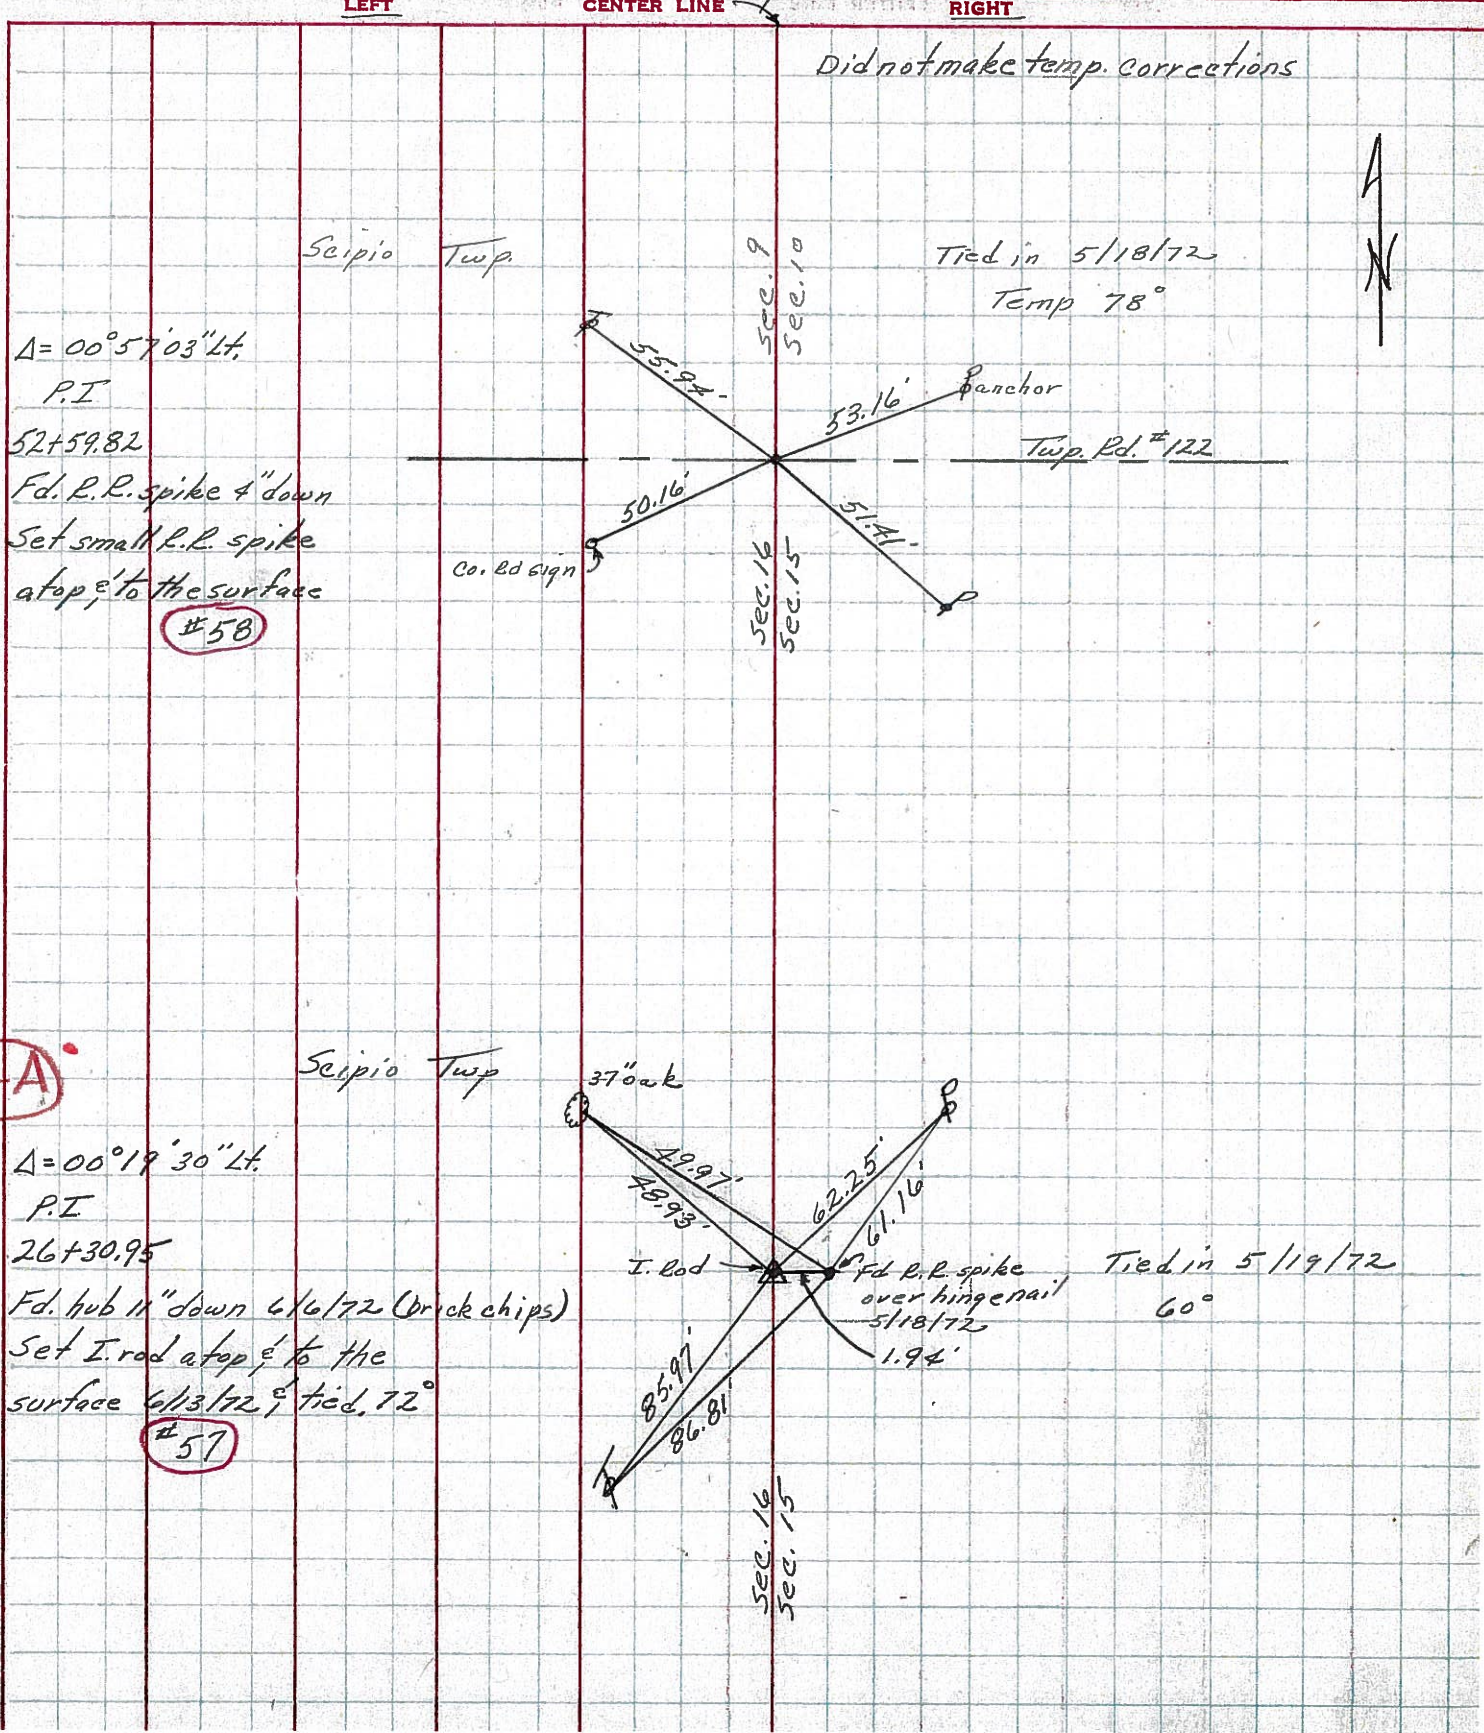 LEFT CENTER LINE RIGHT
Did not make temp. corrections
N
Scipio Twp.
Sec. 9
Sec. 10
Tied in 5/18/72
Temp 78°
Δ= 00°57'03"Lt.
P.I
52+59.82
Fd. R.R. spike 4" down
Set small R.R. spike
atop & to the surface
#58
55.94'
53.16'
anchor
Twp. Rd. #122
50.16'
51.41'
Co. Rd sign
Sec. 16
Sec. 15
A
Scipio Twp
37" oak
Δ=00°19'30"Lt.
P.I.
26+30.95
Fd. hub 11" down 6/6/72 (brick chips)
Set I. rod atop & to the
surface 6/13/72 & tied. 72°
#57
49.97'
48.93'
62.25'
61.16'
I. Rod
Fd R.R. spike
over hinge nail
5/18/72
1.94'
Tied in 5/19/72
60°
85.97'
86.81'
Sec. 16
Sec. 15